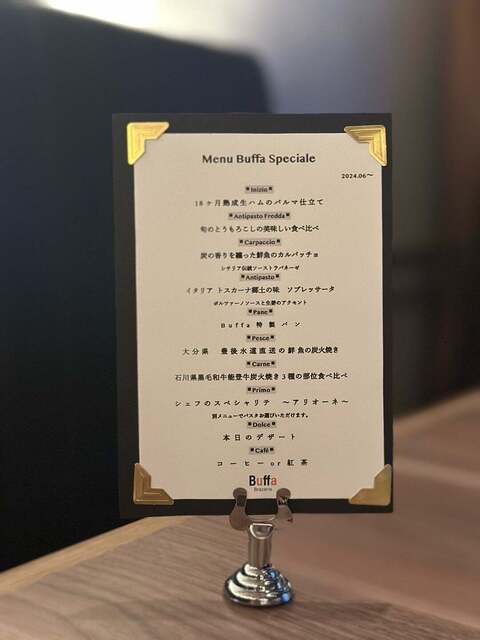 Menu Buffa Speciale
2024.06～
Inizio
18ヶ月熟成生ハムのパルマ仕立て
Antipasto Fredda
旬のとうもろこしの美味しい食べ比べ
Carpaccio
炭の香りを纏った鮮魚のカルパッチョ
シチリア伝統ソーストラパネーゼ
Antipasto
イタリア トスカーナ郷土の味　ソプレッサータ
ポルファーノソースと生姜のアクセント
Pane
Buffa 特製パン
Pesce
大分県　豊後水道直送の鮮魚の炭火焼き
Carne
石川県黒毛和牛能登牛炭火焼き3種の部位食べ比べ
Primo
シェフのスペシャリテ　～アリオーネ～
別メニューでパスタお選びいただけます。
Dolce
本日のデザート
Café
コーヒー or 紅茶
Buffa
Braceria